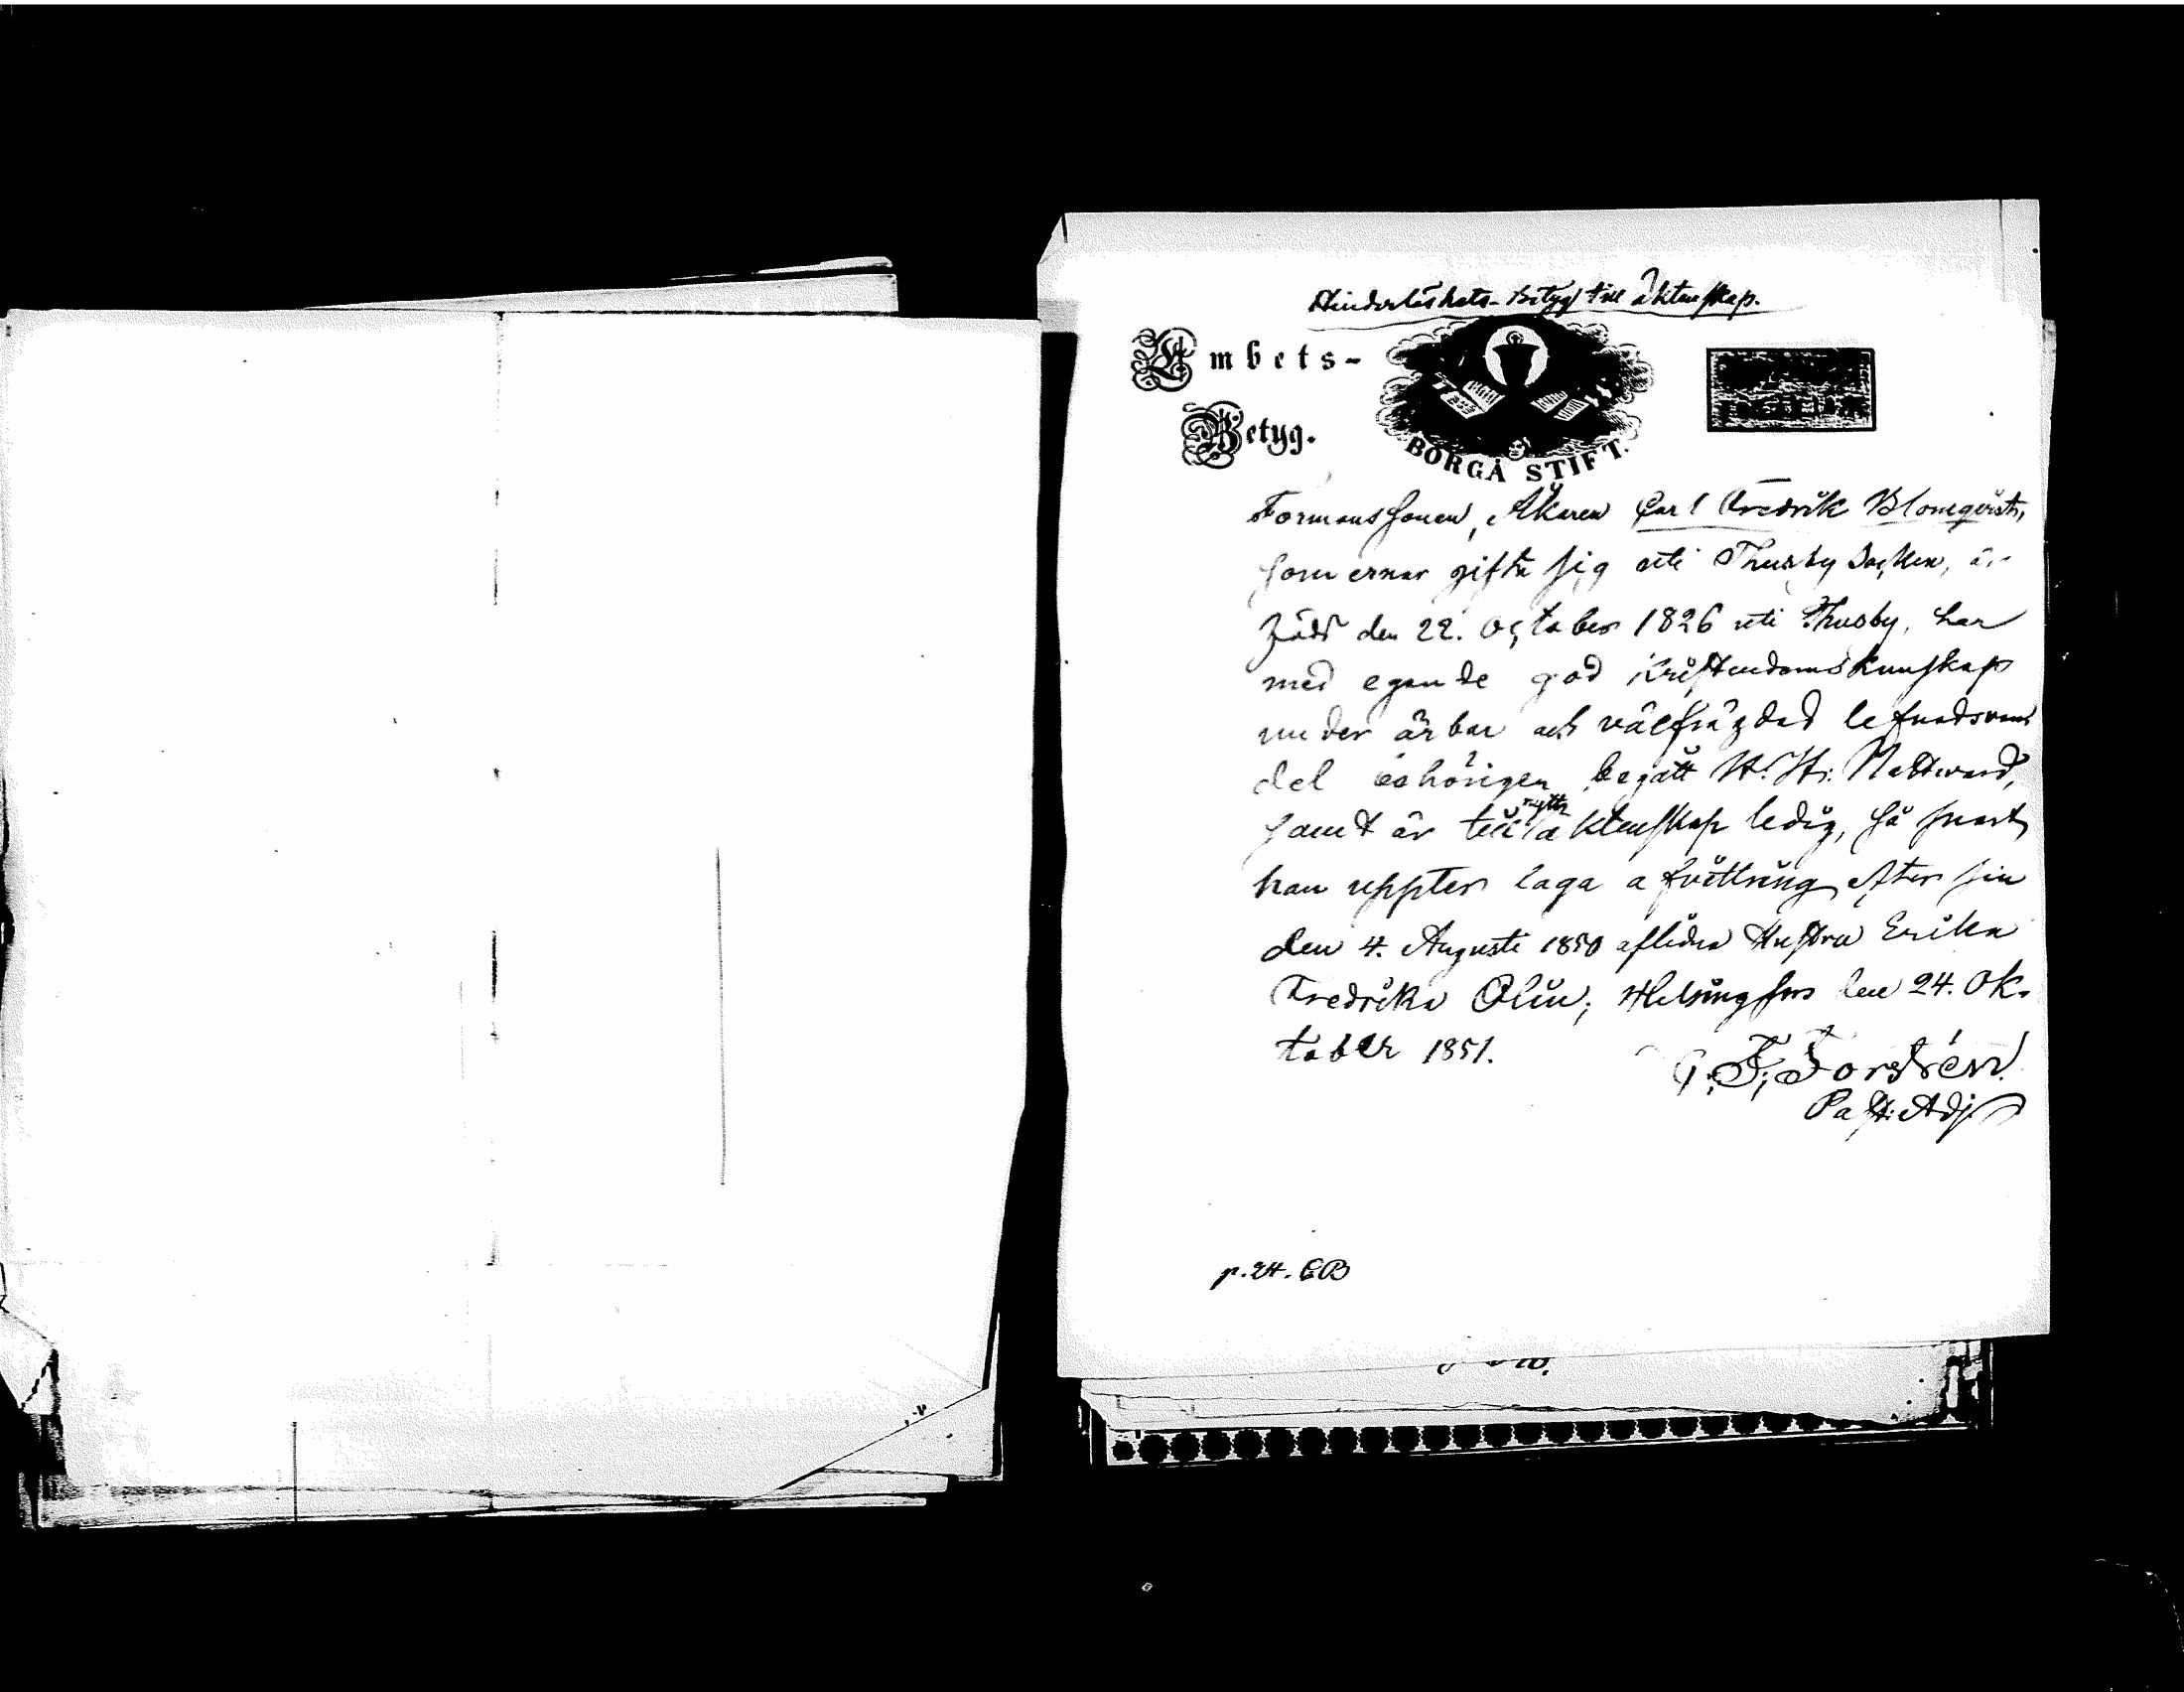 Hinderlöshets-Betyg till äktenskap.
Embets-
Betyg.
BORGÅ STIFT.
Formanssonen, Åkaren Carl Fredrik Blomqvist,
som ernar gifta sig uti Thusby Socken, är
född den 22. October 1826 uti Thusby, har
med egande god Kristendomskunskap
under ärbar och välfräjdad lefnadsvan
del behörigen begått H. H: Nattward,
samt är till nytt äktenskap ledig, så snart
han uppter laga afvittring efter sin
den 4. Augusti 1850 aflidna Hustru Erika
Fredrika Olin; Helsingfors den 24. Ok-
tober 1851.
G. F. Forstrén.
Past: Adj.
p. 24. CB